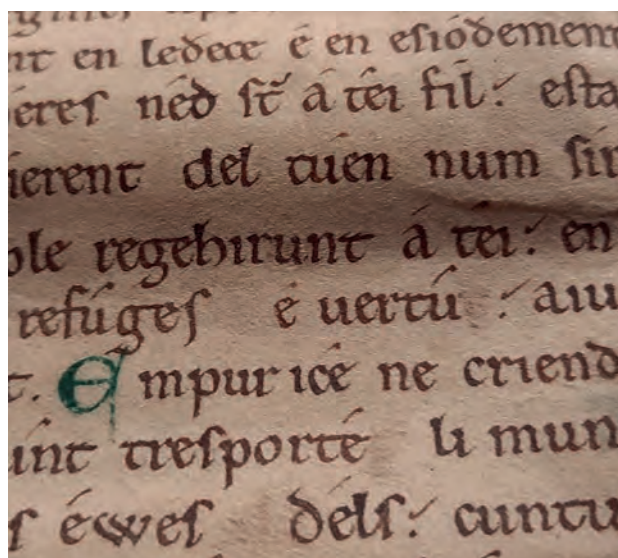 nt en ledece é en esiódement
éres néd st᷑ á téi fil: esta
ierent del tuen num sir
ole regehirunt á téi: en
refúges é uertú : aiu
t. Empur icé ne criend
int tresporté li mun
s éwes déls: cuntu